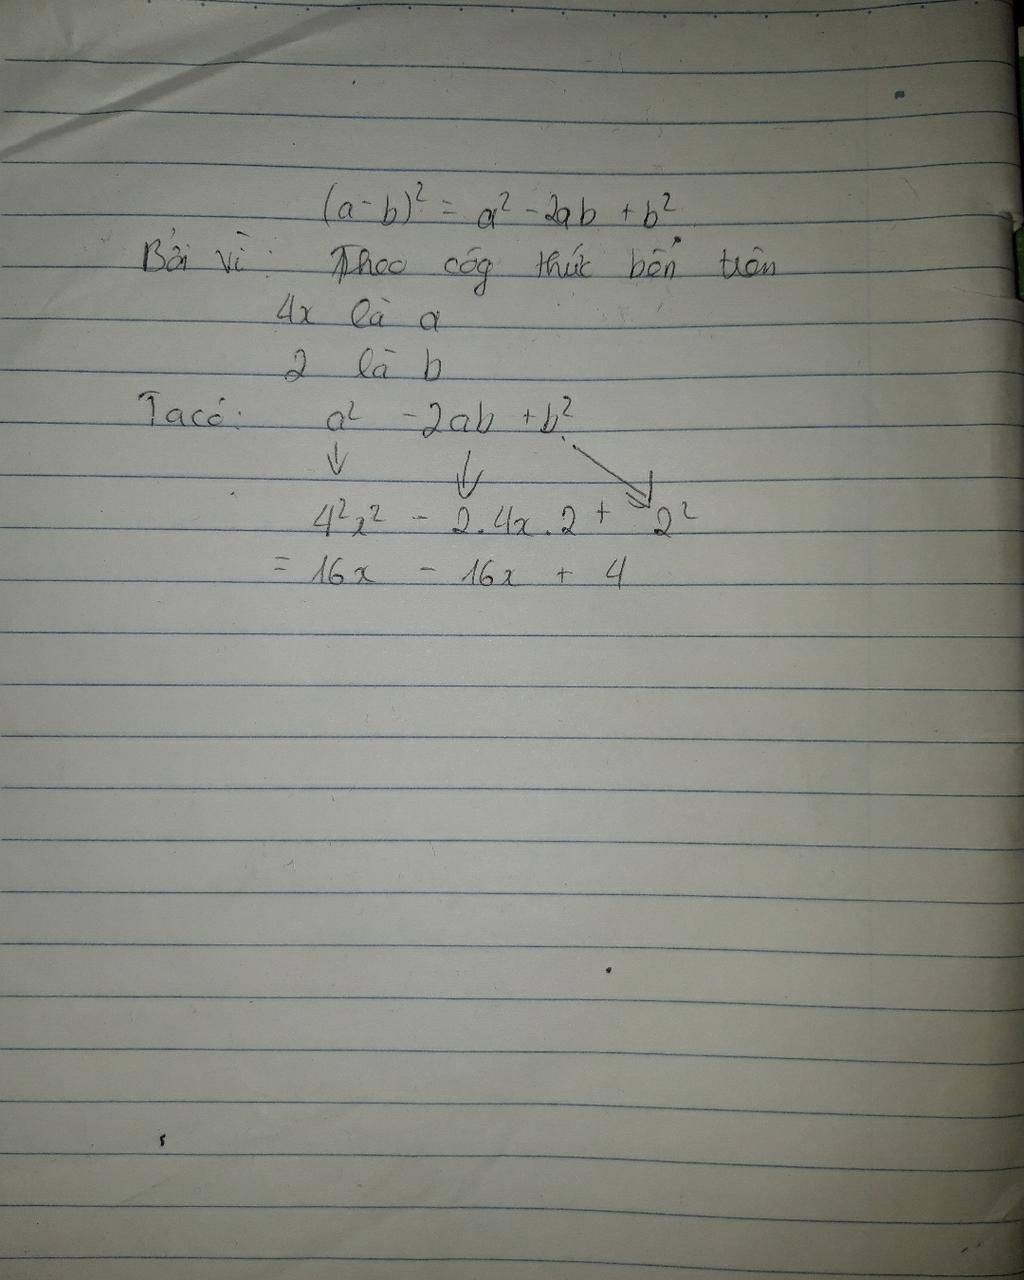 (a-b)² = a² - 2ab + b²
Bởi vì: Theo côg thức bên trên
4x là a
2 là b
Ta có: a² - 2ab + b²
4²x² - 2.4x.2 + 2²
= 16x - 16x + 4